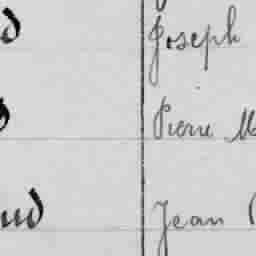 d Joseph
Pierre M
ud Jean